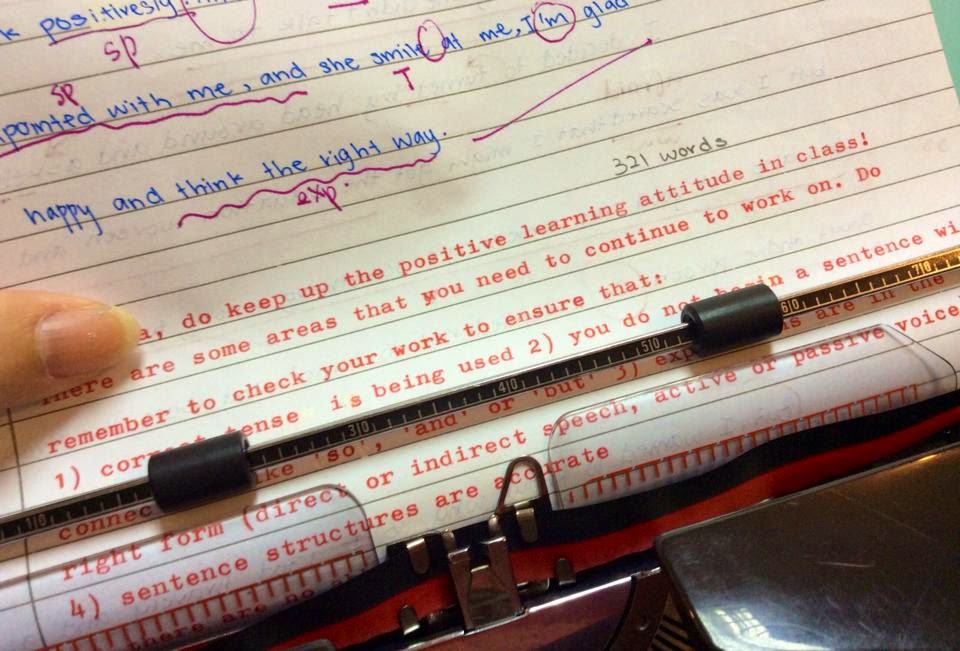 k positively
sp
sp
pointed with me, and she smile at me, I'm glad
T
happy and think the right way.
exp.
321 words
a, do keep up the positive learning attitude in class!
There are some areas that you need to continue to work on. Do
remember to check your work to ensure that:
1) correct tense is being used 2) you do not begin a sentence wi
connec ike 'so', 'and' or 'but' 3) exp ns are in the
right form (direct or indirect speech, active or passive voice
4) sentence structures are accurate
there are no
10 30 40 50 60 70